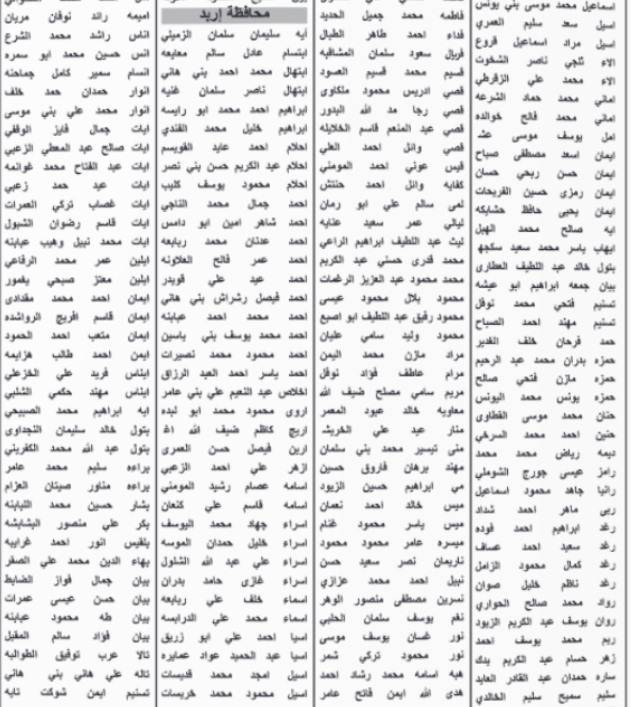 اسماعيل محمد موسى بني يونس
اسيل سعد سليم العمري
اسيل مراد اسماعيل قروع
الاء ثلجي ناصر الشخوت
الاء محمد علي الزقرطي
اماني محمد حماد الشرعه
اماني محمد فالح خوالده
امل يوسف موسى
ايمان اسعد مصطفى صباح
ايمان حسن ربحي حسان
ايمان رمزي حسين الفريحات
ايمان يحيى حافظ حشايكه
ايه صالح محمد الهبل
ايهاب ياسر محمد سعيد سكجها
بتول خالد عبد اللطيف العطاري
بيان جمعه ابراهيم ابو عيشه
تسنيم فتحي محمد نوفل
تسنيم مهند احمد الصباح
حمد فرحان خلف الغدير
حمزه بدران محمد عبد الرحيم
حمزه مازن فتحي صالح
حمزه يونس محمد اليونس
حنان محمد موسى القطاوي
حنين احمد محمد السرخي
ديمه رياض محمد محمد
رامز عيسى جورج الشوملي
رانيا جاهد محمود اسماعيل
ربى ماهر احمد شداد
رغد ابراهيم احمد فوده
رغد سعيد احمد عساف
رغد كمال محمود الزامل
رغد ناظم خليل صوان
رواد محمد صالح الحواري
روان يوسف عبد الكريم الزيود
ريم محمد يوسف احمد
زهر حسام عبد الكريم يدك
ساره حمدان عبد القادر العابد
سليم سميح سليم الخالدي
فاطمه محمد جميل الحديد
فداء احمد طاهر الطبال
فريال سعود سلمان المشاقبه
قسيم محمد قسيم العسود
قصي ادريس محمود ملكاوي
قصي رجا مد الله البدور
قصي عبد المنعم قاسم الخلايله
قصي وائل احمد العلي
قيس عوني احمد المومني
كفايه وائل احمد حنتش
لمى سالم علي ابو رمان
ليالي عمر سعيد عنابه
ليث عبد اللطيف ابراهيم الراعي
محمد قدري حسني عبد الكريم
محمد محمود عبد العزيز الرغمات
محمود بلال محمود عيسى
محمود رفيق عبد اللطيف ابو اصبع
محمود وليد سامي عليان
مراد مازن محمد اليمن
مرام عاطف فؤاد نوفل
مريم سامي مصلح ضيف الله
معاويه خالد عبود المعمر
منار عيد علي الخريشه
منى تيسير محمد بني سلمان
مهند برهان فاروق حسين
مي ابراهيم حسين الزيود
ميس خالد احمد نعمان
ميس ياسر محمود غنام
ميسره عامر محمود محمود
ناريمان نصر سعيد حسن
نبيل احمد محمد عزازي
نسرين مصطفى منصور الوهر
نغم يوسف سلمان الحلبي
نور غسان يوسف موسى
نور محمود تركي شمر
هبه اسامه محمد رشاد احمد
هدى الله ايمن فاتح عامر
محافظة إربد
آيه سليمان سلمان الزميلي
ابتسام عادل سالم معابعه
ابتهال محمد احمد بني هاني
ابتهال ناصر سلمان غنيه
ابراهيم احمد محمد ابو رايسه
ابراهيم خليل محمد الفندي
احلام احمد عايد القويسم
احلام عبد الكريم حسن بني نصر
احلام محمود يوسف كليب
احمد جمال محمد التاجي
احمد شاهر امين ابو دامس
احمد عدنان محمد ربابعه
احمد عمر فالح العلاونه
احمد عيد علي قويدر
احمد فيصل رشراش بني هاني
احمد محمد احمد عبابنه
احمد محمد يوسف بني ياسين
احمد محمود محمد نصيرات
احمد ياسر احمد العبد الرزاق
اخلاص عبد النعيم علي بني عامر
اروى محمود محمد ابو لبده
اريج كاظم ضيف الله اغ
ارين فيصل حسن العمري
ازهر علي احمد الزعبي
اسامه عصام رشيد المومني
اسامه قاسم علي كنعان
اسراء جهاد محمد اليوسف
اسراء خليل حمدان الموسه
اسراء علي عبد الله الشلول
اسراء غازي حامد بدران
اسماء خلف علي ربابعه
اسماء محمد علي الدرابسه
اسيا احمد علي ابو زريق
اسيا عبد الحميد عواد عمايره
اسيل امجد محمد قديسات
اسيل محمود محمد خريسات
اميمه رائد نوفان مريان
اناس راشد محمد الشرع
انس حسين محمد ابو سمره
انسام سمير كامل جماحنه
انوار حمدان حمد خلف
انوار محمد علي بني موسى
ايات جمال فايز الوقفي
ايات صالح عبد المعطي الزعبي
ايات عبد الفتاح محمد غوانمه
ايات عيد حمد زعبي
ايات غصاب تركي العمرات
ايات قاسم رضوان الشبول
ايات محمد نبيل وهيب عبابنه
ايلين عمر محمد الرفاعي
ايلين معتز صبحي يغمور
ايمان احمد محمد مقدادي
ايمان قاسم افريج الرواشده
ايمان متعب احمد الحمود
ايمن احمد طالب هزايمه
ايناس فريد علي الخزعلي
ايناس مهند حكمي الشلبي
ايه ابراهيم محمد الصبيحي
بتول خالد سليمان النجداوي
بتول عبد الله محمد الكفريني
براءه سليم محمد عامر
براءه مناور صيتان العزام
بشار حسين محمد اللبابنه
بكر علي منصور البشابشه
بلقيس انور احمد غرايبه
بهاء الدين محمد علي الصقر
بيان جمال فواز الضابط
بيان حسن عيسى عمرات
بيان طه محمود عبابنه
بيان فؤاد سالم المقبل
تالا عرب توفيق الطوالبه
تاله علي هاني بني هاني
تسنيم ايمن شوكت تايه